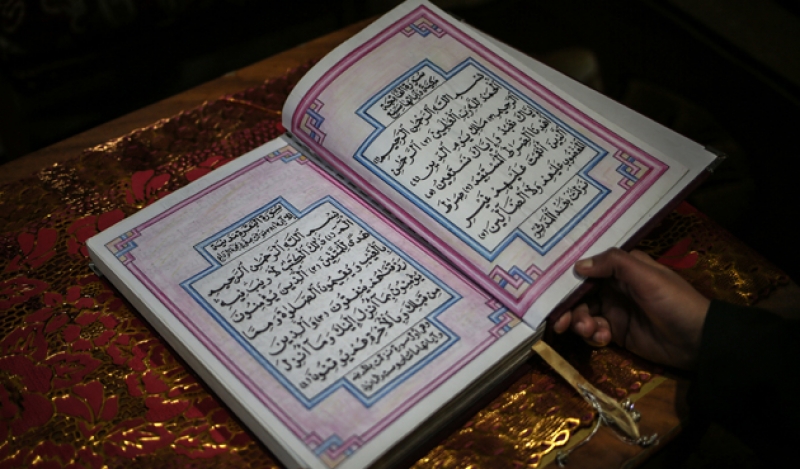 سورة الفاتحة
مكية وآياتها سبعة
بسم الله الرحمن الرحيم (١)
الحمد لله رب العالمين (٢) الرحمن
الرحيم (٣) مالك يوم الدين (٤)
إياك نعبد وإياك نستعين (٥)
اهدنا الصراط المستقيم (٦) صراط
الذين أنعمت عليهم غير
المغضوب عليهم ولا الضالين (٧)
نزلت بعد المدثر
سورة البقرة مدنية
بسم الله الرحمن الرحيم
الم (١) ذلك الكتب لا ريب فيه
هدى للمتقين (٢) الذين يؤمنون
بالغيب ويقيمون الصلوة ومما
رزقنهم ينفقون (٣) والذين
يؤمنون بما أنزل إليك وما أنزل
من قبلك وبالآخرة هم يوقنون (٤)